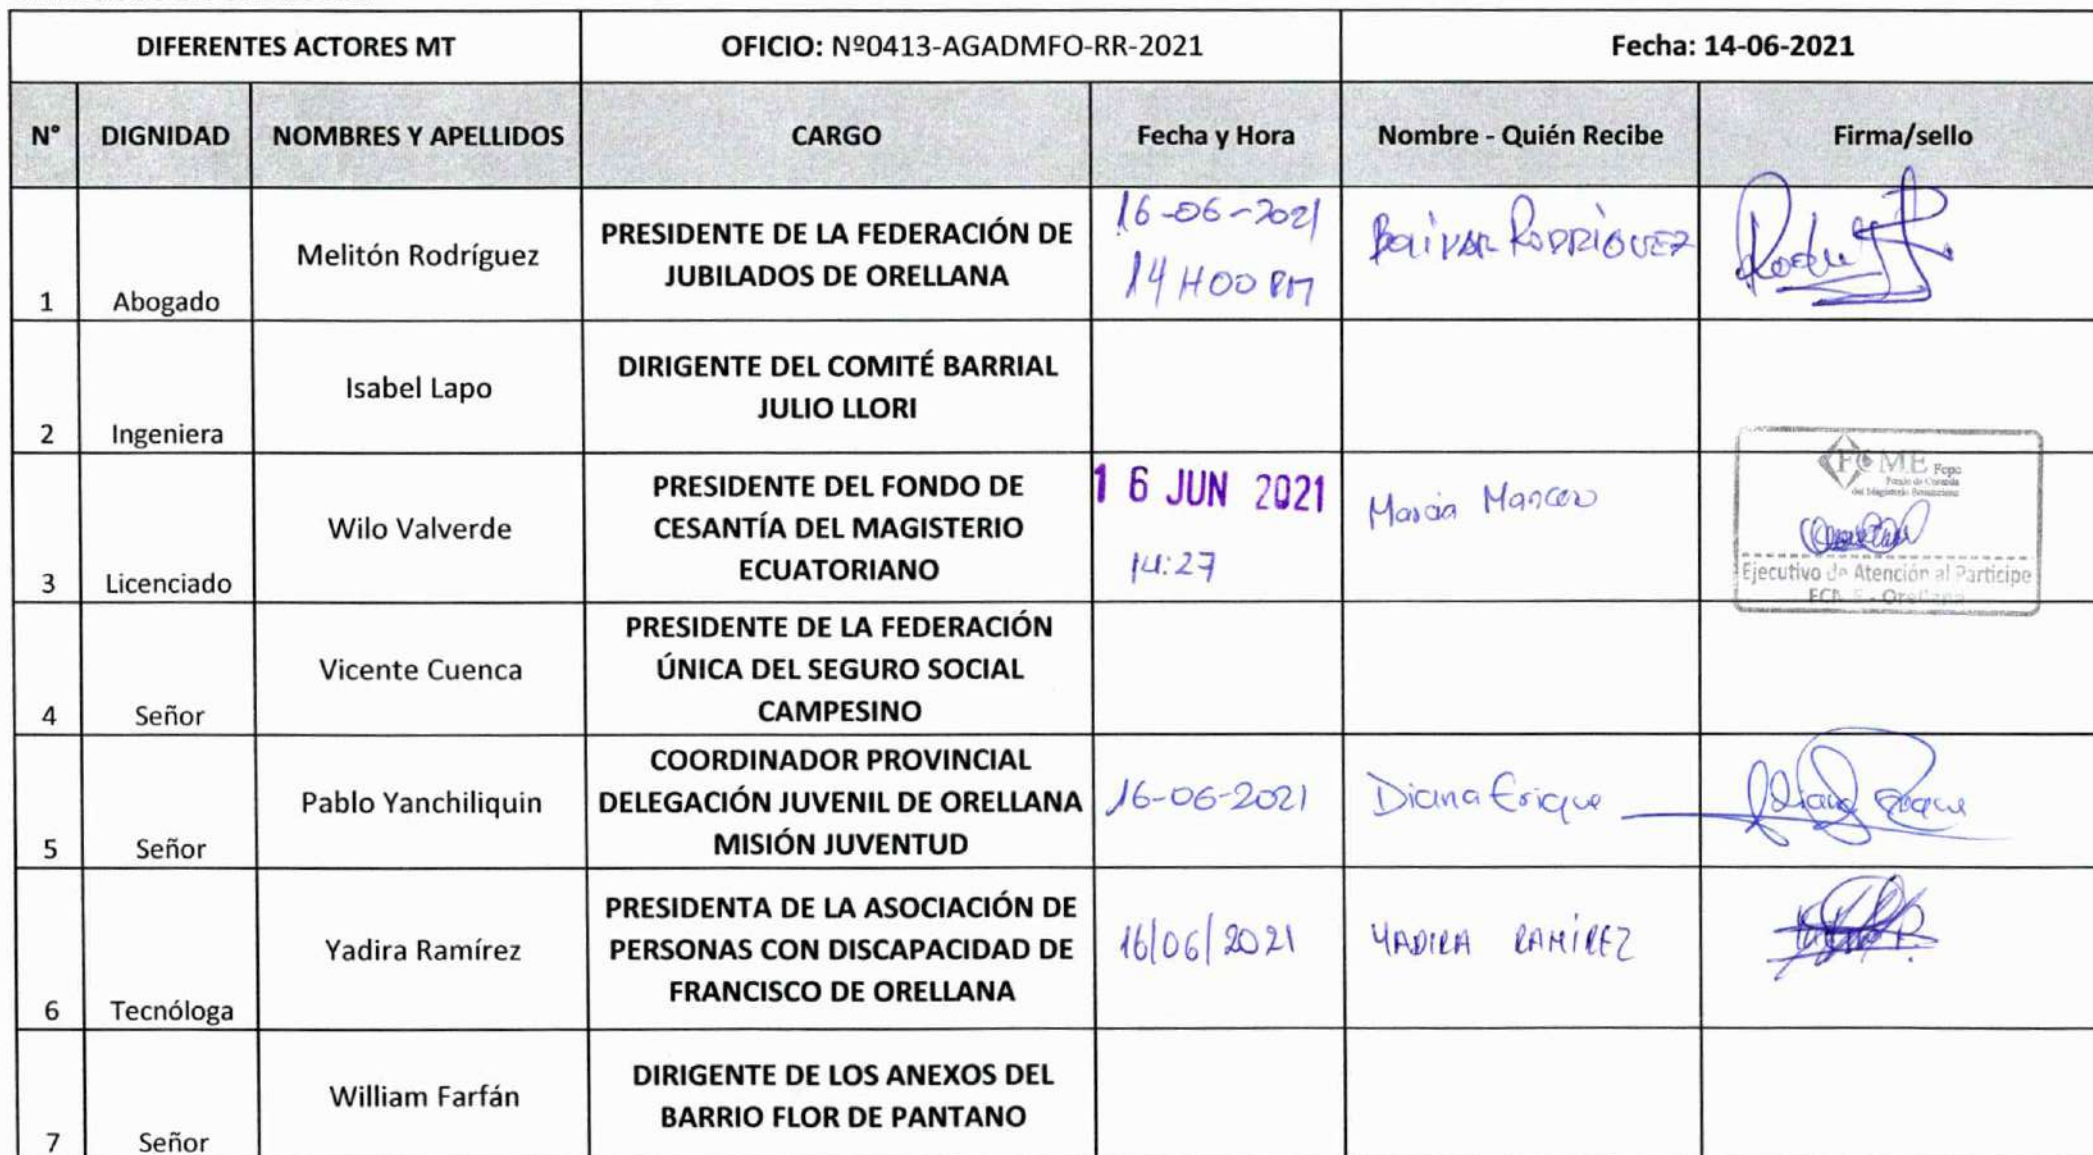 DIFERENTES ACTORES MT OFICIO: Nº0413-AGADMFO-RR-2021 Fecha: 14-06-2021
N° DIGNIDAD NOMBRES Y APELLIDOS CARGO Fecha y Hora Nombre - Quién Recibe Firma/sello
1 Abogado Melitón Rodríguez
PRESIDENTE DE LA FEDERACIÓN DE
JUBILADOS DE ORELLANA
16-06-2021
14H00 PM
BOLIVAR RODRÍGUEZ
2 Ingeniera Isabel Lapo
DIRIGENTE DEL COMITÉ BARRIAL
JULIO LLORI
3 Licenciado Wilo Valverde
PRESIDENTE DEL FONDO DE
CESANTÍA DEL MAGISTERIO
ECUATORIANO
16 JUN 2021
14:27
Fcpc
Fondo de Cesantía
del Magisterio Ecuatoriano
Ejecutivo de Atención al Participe
Orellana
4 Señor Vicente Cuenca
PRESIDENTE DE LA FEDERACIÓN
ÚNICA DEL SEGURO SOCIAL
CAMPESINO
5 Señor Pablo Yanchiliquin
COORDINADOR PROVINCIAL
DELEGACIÓN JUVENIL DE ORELLANA
MISIÓN JUVENTUD
16-06-2021
Diana Erique
6 Tecnóloga Yadira Ramírez
PRESIDENTA DE LA ASOCIACIÓN DE
PERSONAS CON DISCAPACIDAD DE
FRANCISCO DE ORELLANA
16/06/2021
YADIRA RAMÍREZ
7 Señor William Farfán
DIRIGENTE DE LOS ANEXOS DEL
BARRIO FLOR DE PANTANO